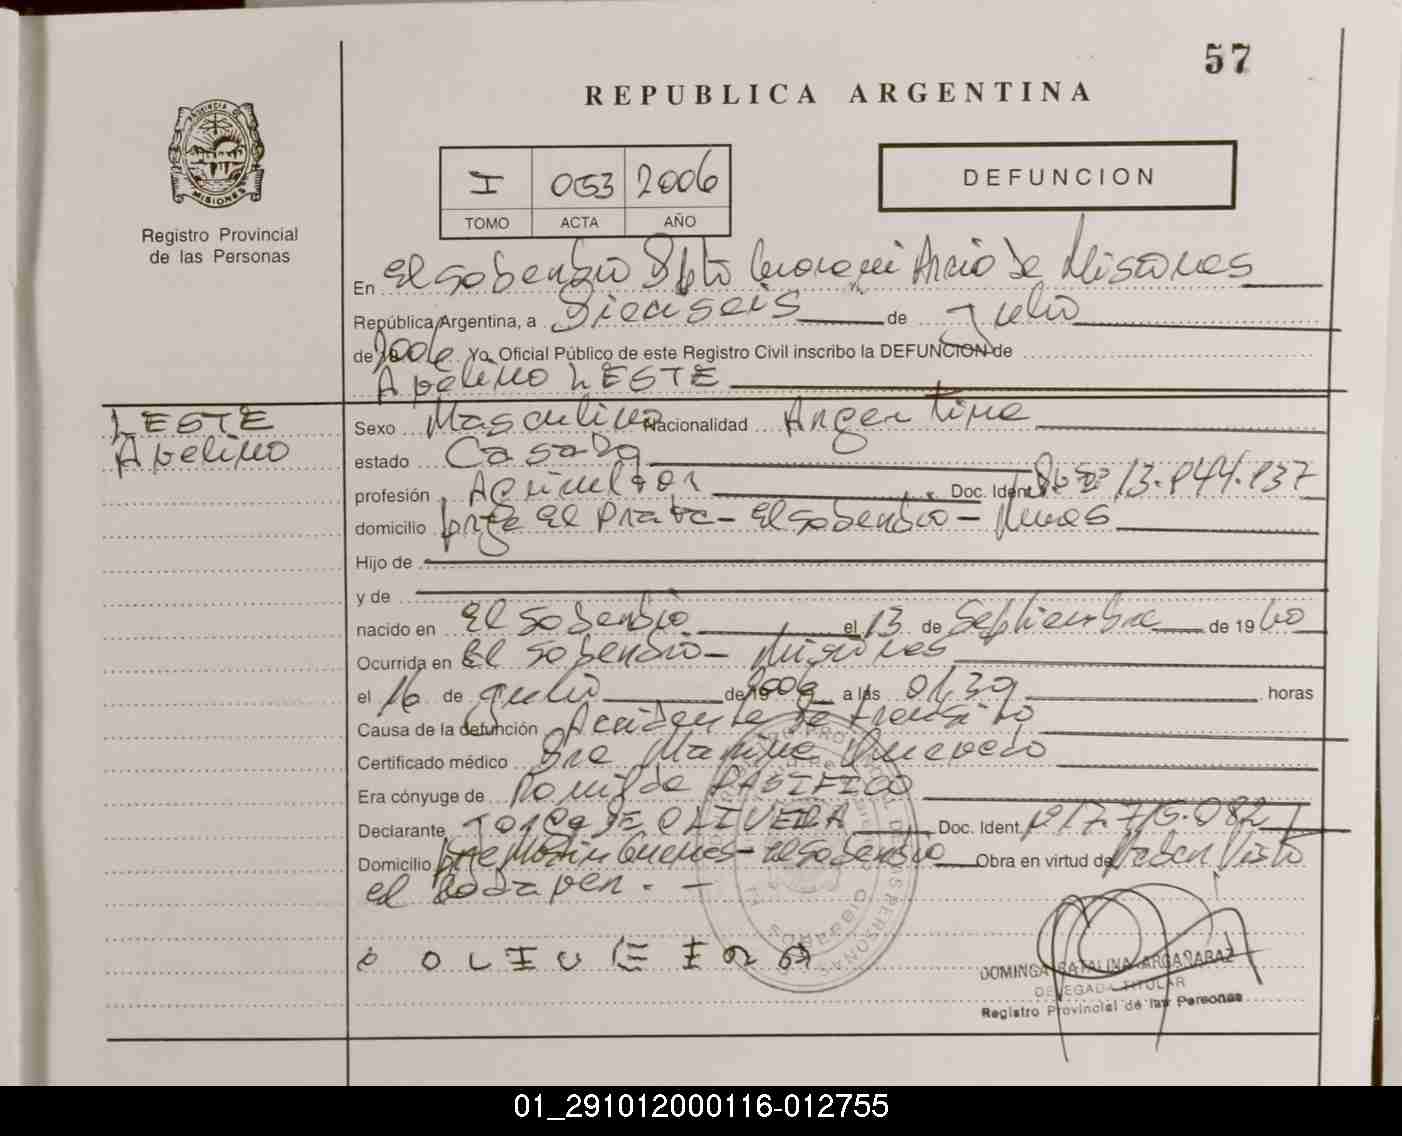 57
REPUBLICA ARGENTINA
PROVINCIA DE
MISIONES
Registro Provincial
de las Personas
I 053 2006
TOMO ACTA AÑO
DEFUNCION
En El Soberbio Dpto Guarani Prcia de Misiones
República Argentina, a Dieciseis de Julio
de 2006 Yo, Oficial Público de este Registro Civil inscribo la DEFUNCION de
Avelino LESTE
LESTE
Avelino
Sexo Masculino Nacionalidad Argentina
estado Casado
profesión Agricultor Doc. Ident. 13.844.837
domicilio El Prata - El Soberbio - Mnes
Hijo de
y de
nacido en El Soberbio el 13 de Septiembre de 1960
Ocurrida en El Soberbio - Misiones
el 16 de Julio de 2006 a las 01,30 horas
Causa de la defunción Accidente de transito
Certificado médico Dra Marina Quevedo
Era cónyuge de Romilda PASIFICO
Declarante Jorge DE OLIVEIRA Doc. Ident. 17.715.082
Domicilio Martin Guemes - El Soberbio Obra en virtud de haber visto
el cadaver. -
O OLIVEIRA
DOMINGA CATALINA ARGAÑARAZ
DELEGADA TITULAR
Registro Provincial de las Personas
01_291012000116-012755